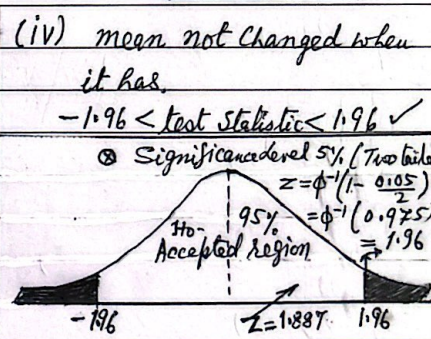 (iv) mean not changed when
it has.
-1.96 < test statistic < 1.96 ✓
⊗ Significance level 5% (Two taile
z = φ⁻¹(1 - 0.05/2)
= φ⁻¹(0.975)
= 1.96
95%
Ho-
Accepted region
-196
Z=1.887
1.96